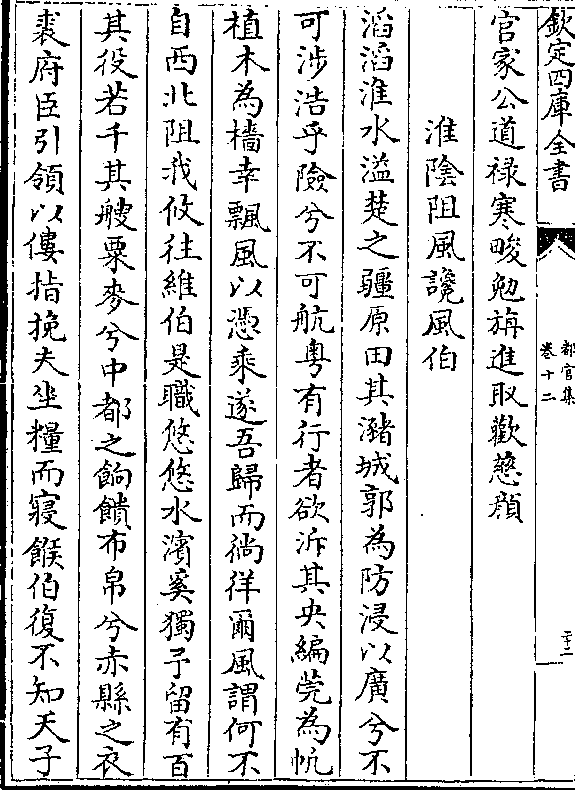 欽定四庫全書
都官集
卷十二
二十二
官家公道禄寒畯勉旃進取歡慈顔
淮陰阻風讒風伯
滔滔淮水溢楚之疆原田其瀦城郭為防浸以廣兮不
可涉浩乎險兮不可航粤有行者欲泝其央編莞為帆
植木為檣幸飄風以憑乘遂吾歸而徜徉爾風謂何不
自西北阻我攸往維伯是職悠悠水濱奚獨予留有百
其役若千其艘粟麥兮中都之餉饋布帛兮赤縣之衣
裘府臣引領以僂指挽夫坐糧而寢餱伯復不知天子